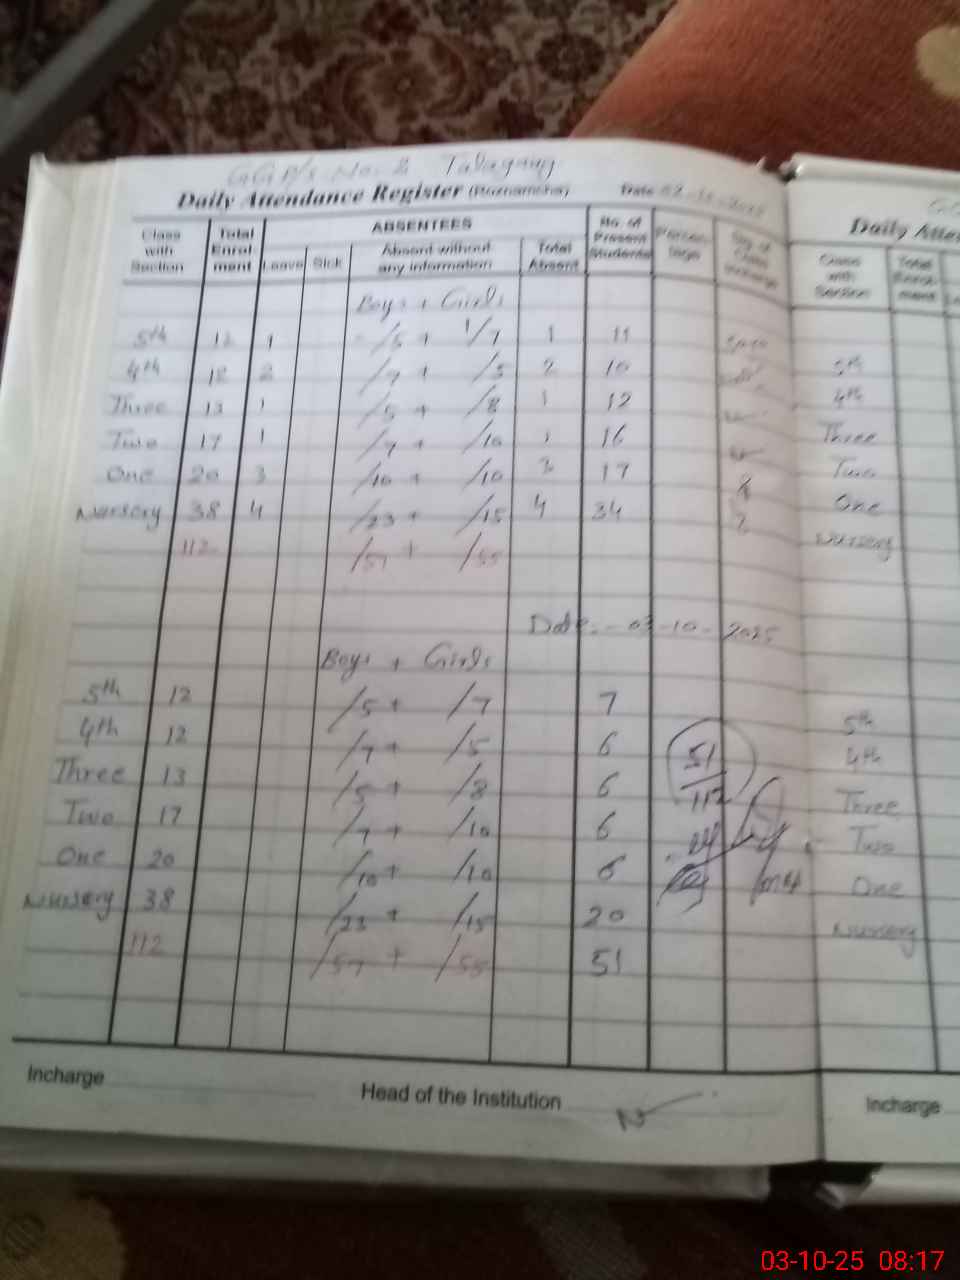 GGP/S No. 2 Talagang
Daily Attendance Register (Roznamcha) Date 02-10-2025
Class with Section Total Enrol- ment ABSENTEES No. of Present Students Percen- tage Sig. of Class Incharge
Leave Sick Absent without any information Total Absent
Boys + Girls
5th 12 1 /5 + /7 1 11
4th 12 2 /7 + /5 2 10
Three 13 1 /5 + /8 1 12
Two 17 1 /7 + /10 1 16
One 20 3 /10 + /10 3 17
Nursery 38 4 /23 + /15 4 34
112 /57 + /55
Date:- 03-10-2025
Boys + Girls
5th 12 /5 + /7 7
4th 12 /7 + /5 6
Three 13 /5 + /8 6
Two 17 /7 + /10 6
One 20 /10 + /10 6
Nursery 38 /23 + /15 20
112 /57 + /55 51
51
112
Incharge Head of the Institution
Daily
Class with Section Total Enrol- ment
5th
4th
Three
Two
One
Nursery
5th
4th
Three
Two
One
Nursery
Incharge
03-10-25 08:17